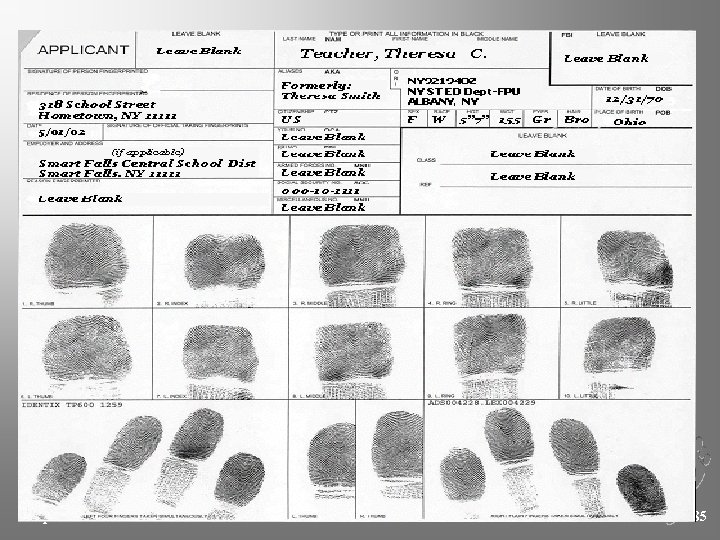 LEAVE BLANK
TYPE OR PRINT ALL INFORMATION IN BLACK
FBI
LEAVE BLANK
APPLICANT
Leave Blank
LAST NAME NAM
FIRST NAME
MIDDLE NAME
Teacher, Theresa C.
Leave Blank
SIGNATURE OF PERSON FINGERPRINTED
ALIASES AKA
O
R
I
Formerly:
Theresa Smith
NY921940Z
NYST ED Dept-FPU
ALBANY, NY
RESIDENCE OF PERSON FINGERPRINTED
318 School Street
Hometown, NY 11111
DATE OF BIRTH DOB
12/31/70
CITIZENSHIP CTZ
US
SEX
RACE
HGT
WGT
EYES
HAIR
PLACE OF BIRTH POB
F W 5”7” 155 Gr Bro Ohio
DATE
SIGNATURE OF OFFICIAL TAKING FINGERPRINTS
5/01/02
YOUR NO. OCA
Leave Blank
LEAVE BLANK
EMPLOYER AND ADDRESS
(if applicable)
Smart Falls Central School Dist
Smart Falls. NY 11111
Leave Blank
Leave Blank
CLASS
ARMED FORCES NO. MNU
Leave Blank
Leave Blank
REF
REASON FINGERPRINTED
Leave Blank
SOCIAL SECURITY NO. SOC
000-10-1111
MISCELLANEOUS NO. MNU
Leave Blank
1. R. THUMB
2. R. INDEX
3. R. MIDDLE
4. R. RING
5. R. LITTLE
6. L. THUMB
7. L. INDEX
8. L. MIDDLE
9. L. RING
10. L. LITTLE
IDENTIX TP600 1259
ADS004228 LEX004229
LEFT FOUR FINGERS TAKEN SIMULTANEOUSLY
L. THUMB
R. THUMB
RIGHT FOUR FINGERS TAKEN SIMULTANEOUSLY
35